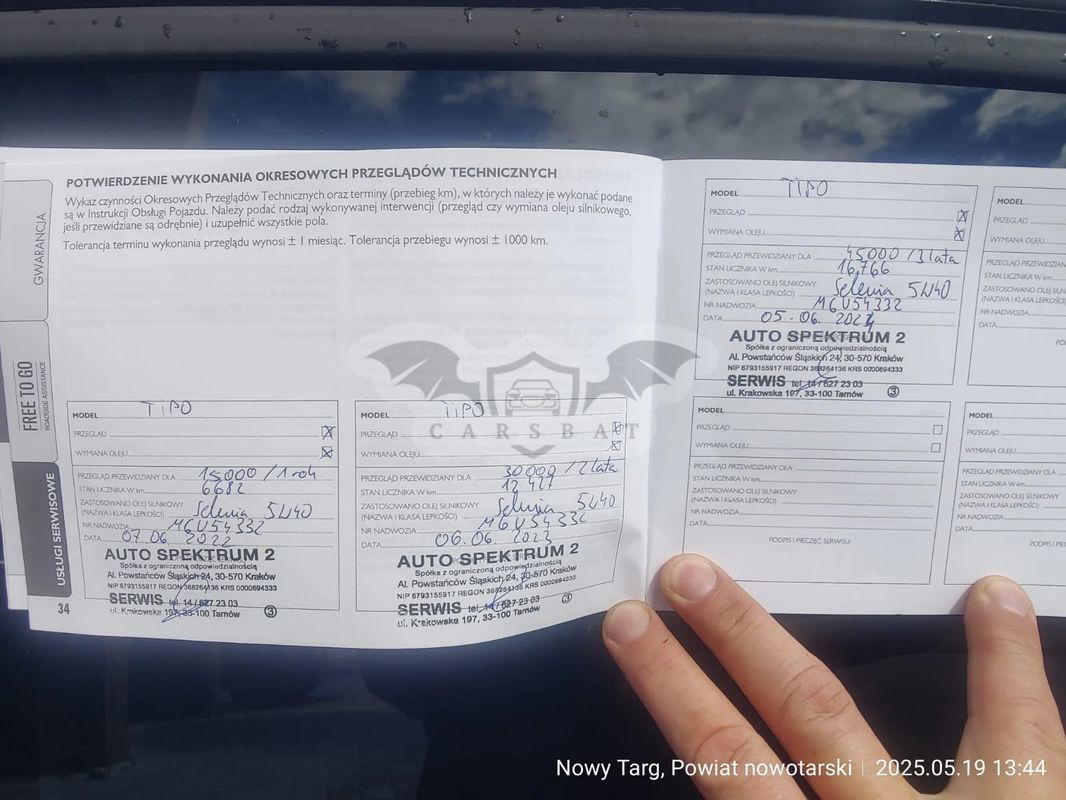 POTWIERDZENIE WYKONANIA OKRESOWYCH PRZEGLĄDÓW TECHNICZNYCH
Wykaz czynności Okresowych Przeglądów Technicznych oraz terminy (przebieg km), w których należy je wykonać podane
są w Instrukcji Obsługi Pojazdu. Należy podać rodzaj wykonywanej interwencji (przegląd czy wymiana oleju silnikowego,
jeśli przewidziane są odrębnie) i uzupełnić wszystkie pola.
Tolerancja terminu wykonania przeglądu wynosi ± 1 miesiąc. Tolerancja przebiegu wynosi ± 1000 km.
GWARANCJA
FREE TO GO
ROADSIDE ASSISTANCE
USŁUGI SERWISOWE
34
MODEL TIPO
PRZEGLĄD
WYMIANA OLEJU
PRZEGLĄD PRZEWIDZIANY DLA 15000 / 1 rok
STAN LICZNIKA W km 6682
ZASTOSOWANO OLEJ SILNIKOWY
(NAZWA I KLASA LEPKOŚCI) Selenia 5W40
NR NADWOZIA M6U54332
DATA 07.06 2022
AUTO SPEKTRUM 2
Spółka z ograniczoną odpowiedzialnością
Al. Powstańców Śląskich 24, 30-570 Kraków
NIP 6793155917 REGON 368264136 KRS 0000694333
SERWIS tel. 14 / 627 23 03
ul. Krakowska 197, 33-100 Tarnów
3
MODEL TIPO
PRZEGLĄD
WYMIANA OLEJU
PRZEGLĄD PRZEWIDZIANY DLA 30000 / 2 lata
STAN LICZNIKA W km 12 427
ZASTOSOWANO OLEJ SILNIKOWY
(NAZWA I KLASA LEPKOŚCI) Selenia 5W40
NR NADWOZIA M6U54332
DATA 06.06. 2023
AUTO SPEKTRUM 2
Spółka z ograniczoną odpowiedzialnością
Al. Powstańców Śląskich 24, 30-570 Kraków
NIP 6793155917 REGON 368264136 KRS 0000694333
SERWIS tel. 14 / 627 23 03
ul. Krakowska 197, 33-100 Tarnów
3
MODEL TIPO
PRZEGLĄD
WYMIANA OLEJU
PRZEGLĄD PRZEWIDZIANY DLA 45000 / 3 lata
STAN LICZNIKA W km 16,766
ZASTOSOWANO OLEJ SILNIKOWY
(NAZWA I KLASA LEPKOŚCI) Selenia 5W40
NR NADWOZIA M6U54332
DATA 05.06. 2024
AUTO SPEKTRUM 2
Spółka z ograniczoną odpowiedzialnością
Al. Powstańców Śląskich 24, 30-570 Kraków
NIP 6793155917 REGON 368264136 KRS 0000694333
SERWIS tel. 14 / 627 23 03
ul. Krakowska 197, 33-100 Tarnów
3
MODEL
PRZEGLĄD
WYMIANA OLEJU
PRZEGLĄD PRZEWIDZIANY DLA
STAN LICZNIKA W km
ZASTOSOWANO OLEJ SILNIKOWY
(NAZWA I KLASA LEPKOŚCI)
NR NADWOZIA
DATA
PODPIS I PIECZĘĆ SERWISU
MODEL
PRZEGLĄD
WYMIANA OLEJU
PRZEGLĄD PRZEWIDZIANY
STAN LICZNIKA W km
ZASTOSOWANO OLEJ
(NAZWA I KLASA LEPKOŚCI)
NR NADWOZIA
DATA
MODEL
PRZEGLĄD
WYMIANA OLEJU
PRZEGLĄD PRZEWIDZIANY DLA
STAN LICZNIKA W km
ZASTOSOWANO OLEJ SILNIKOWY
(NAZWA I KLASA LEPKOŚCI)
NR NADWOZIA
DATA
PODPIS I PIE
CARSBAT
Nowy Targ, Powiat nowotarski | 2025.05.19 13:44